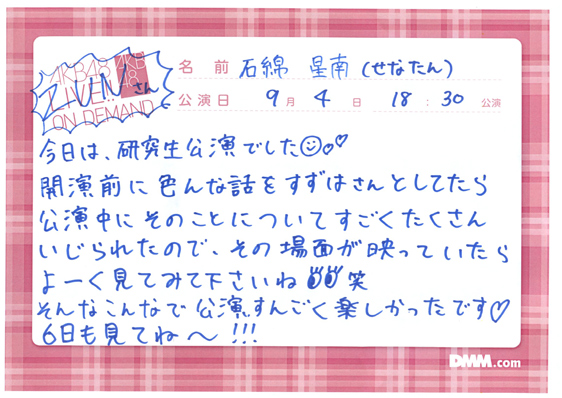 AKB48
LIVE!!
ON DEMAND
AKB
48
さん
名 前 石綿 星南(せなたん)
公演日 9月 4日 18:30公演
今日は、研究生公演でした
開演前に色んな話をすずはさんとしてたら
公演中にそのことについてすごくたくさん
いじられたので、その場面が映っていたら
よーく見てみて下さいね 笑
そんなこんなで公演すんごく楽しかったです♡
6日も見てね〜!!!
DMM.com